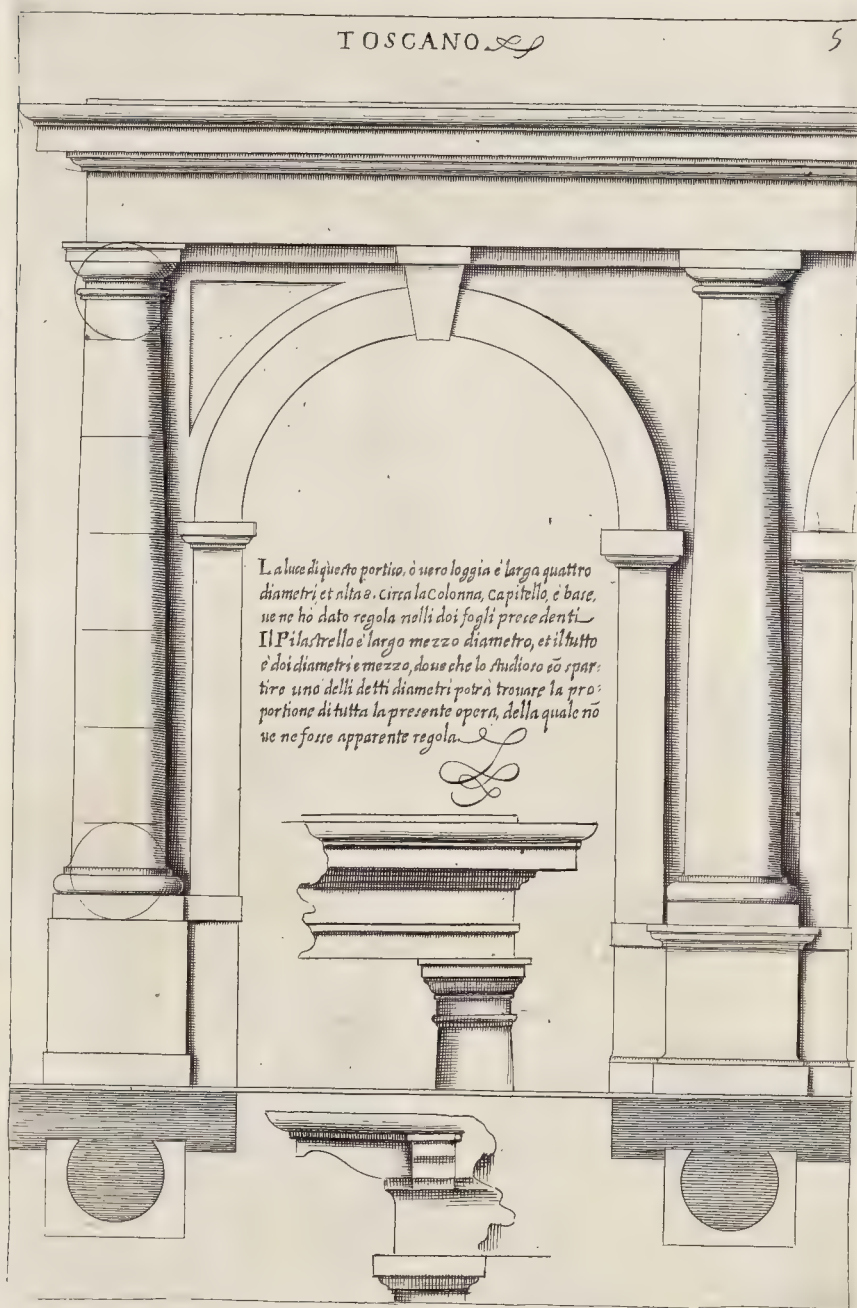 TOSCANO
5
La luce di questo portico, ò uero loggia è larga quattro
diametri, et alta 8. circa la Colonna, Capitello, è base,
ue ne hò dato regola nelli doi fogli precedenti
Il Pilastrello è largo mezzo diametro, et il tutto
è doi diametri e mezzo, doue che lo studioso cō spar:
tire uno delli detti diametri potrà trouare la pro:
portione di tutta la presente opera, della quale nō
ue ne fosse apparente regola